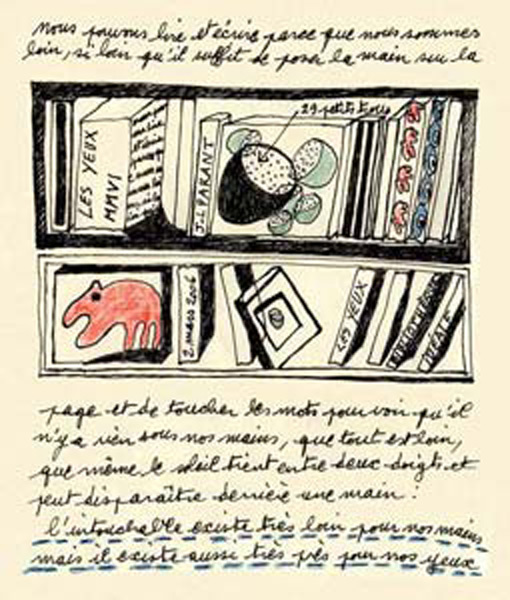 nous pouvons lire et écrire parce que nous sommes
loin, si loin qu'il suffit de poser la main sur la
29 petits trous
LES YEUX
MMVI
J.L. PARANT
2 mars 2006
LES YEUX
BIBLIOTHÈQUE
IDÉALE
page et de toucher les mots pour voir qu'il
n'y a rien sous nos mains, que tout est loin,
que même le soleil tient entre deux doigts et
peut disparaître derrière une main :
l'intouchable existe très loin pour nos mains
mais il existe aussi très près pour nos yeux